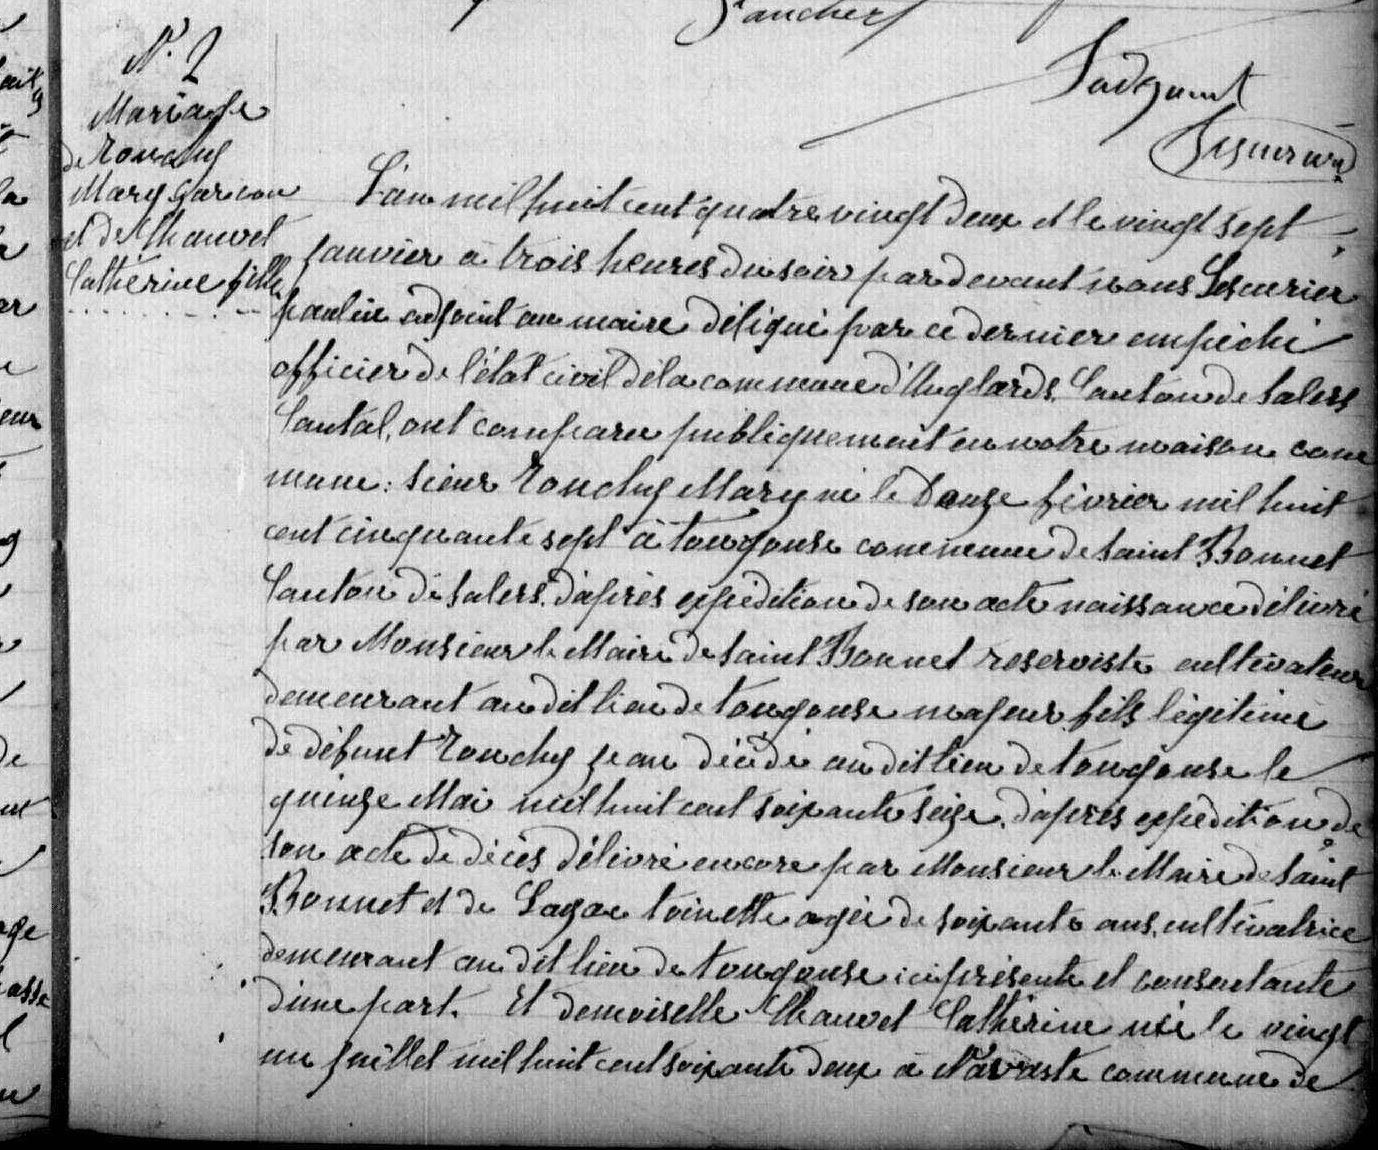 Faucher
L'adjoint
Lescurier
N°. 2
Mariage
de Ronchy
Mary garçon
et de Chauvet
Catherine fille
L'an mil huit cent quatre vingt deux et le vingt sept
janvier à trois heures du soir par devant nous Lescurier
paulin adjoint au maire délégué par ce dernier empêché
officier de l'état civil de la commune d'Anglards, Canton de Salers
Cantal, ont comparu publiquement en notre maison com
mune: sieur Ronchy Mary né le Douze février mil huit
cent cinquante sept à tougouse commune de Saint Bonnet
Canton de Salers, d'après expédition de son acte naissance délivré
par Monsieur le Maire de Saint Bonnet reserviste cultivateur
demeurant au dit lieu de tougouse majeur, fils légitime
de défunt Ronchy jean décédé au dit lieu de tougouse le
quinze Mai mil huit cent soixante seize, d'après expédition de
son acte de décès délivré encore par Monsieur le Maire de Saint
Bonnet et de Lagac toinette agée de soixante ans, cultivatrice
demeurant au dit lieu de tougouse ici présente et consentante
d'une part. Et demoiselle Chauvet Catherine née le vingt
un juillet mil huit cent soixante deux à Navaste commune de